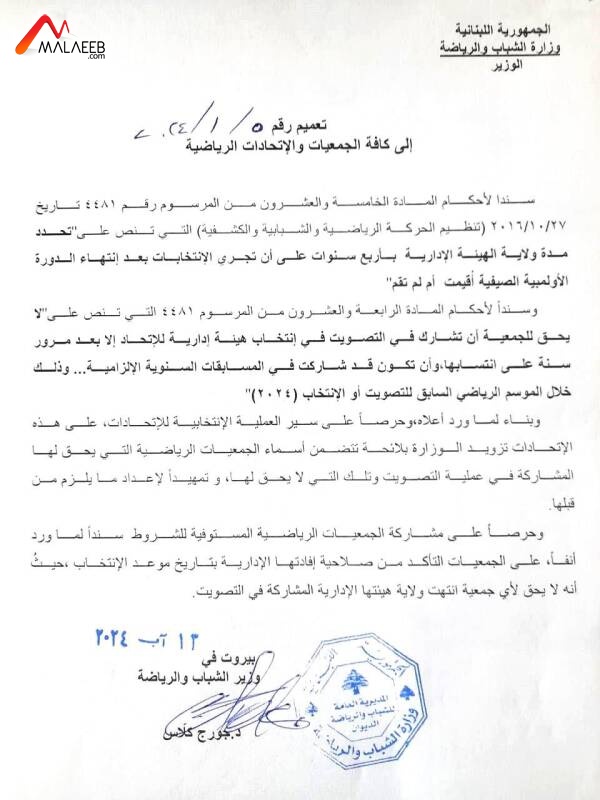 MALAEEB
.com
الجمهورية اللبنانية
وزارة الشباب والرياضة
الوزير
تعميم رقم ٥/١/٢٠٢٤
إلى كافة الجمعيات والإتحادات الرياضية
سنداً لأحكام المادة الخامسة والعشرون من المرسوم رقم ٤٤٨١ تاريخ
٢٠١٦/١٠/٢٧ (تنظيم الحركة الرياضية والشبابية والكشفية) التي تنص على"تحدد
مدة ولاية الهيئة الإدارية بأربع سنوات على أن تجري الإنتخابات بعد إنتهاء الدورة
الأولمبية الصيفية أقيمت أم لم تقم"
وسنداً لأحكام المادة الرابعة والعشرون من المرسوم ٤٤٨١ التي تنص على"لا
يحق للجمعية أن تشارك في التصويت في إنتخاب هيئة إدارية للإتحاد إلا بعد مرور
سنة على انتسابها،وأن تكون قد شاركت في المسابقات السنوية الإلزامية... وذلك
خلال الموسم الرياضي السابق للتصويت أو الإنتخاب (٢٠٢٤)"
وبناء لما ورد أعلاه،وحرصاً على سير العملية الإنتخابية للإتحادات، على هذه
الإتحادات تزويد الوزارة بلائحة تتضمن أسماء الجمعيات الرياضية التي يحق لها
المشاركة في عملية التصويت وتلك التي لا يحق لها، و تمهيداً لإعداد ما يلزم من
قبلها.
وحرصاً على مشاركة الجمعيات الرياضية المستوفية للشروط سنداً لما ورد
أنفاً، على الجمعيات التأكد من صلاحية إفادتها الإدارية بتاريخ موعد الإنتخاب ،حيثُ
أنه لا يحق لأي جمعية انتهت ولاية هيئتها الإدارية المشاركة في التصويت.
١٣ آب ٢٠٢٤
بيروت في
وزير الشباب والرياضة
د.جورج كلّاس
المديرية العامة
للشباب والرياضة
الديوان
وزارة الشباب والرياضة